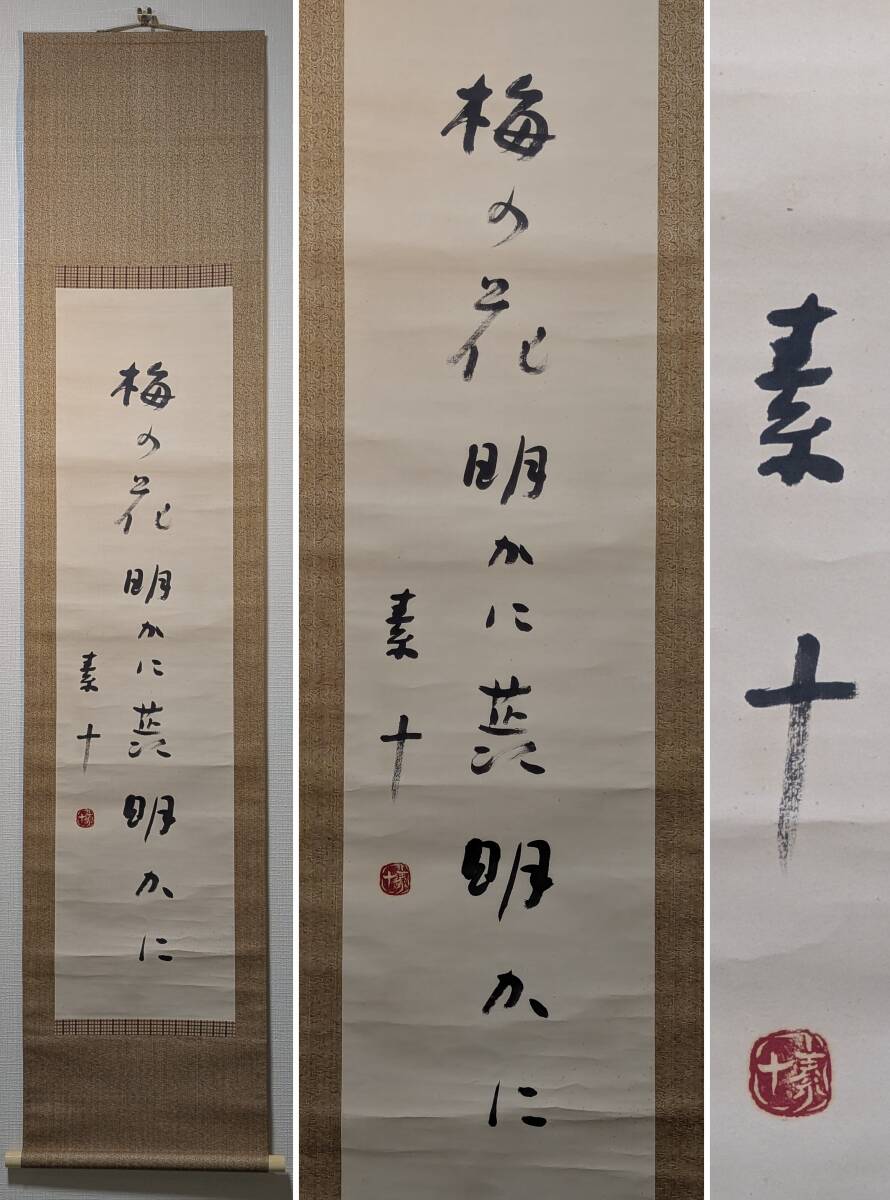 梅の花明かに蕋明かに
素十
素十
梅の花明かに蕋明かに
素十
素十
素十
素十